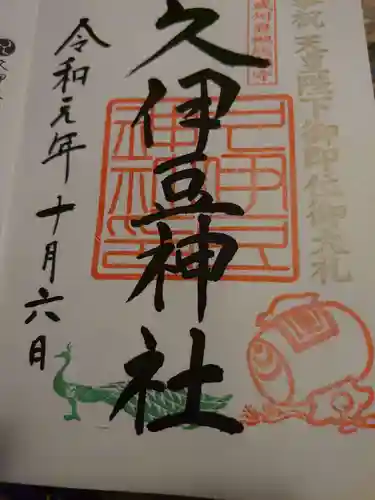 奉祝 天皇陛下御即位御大礼
久伊豆神社
令和元年十月六日